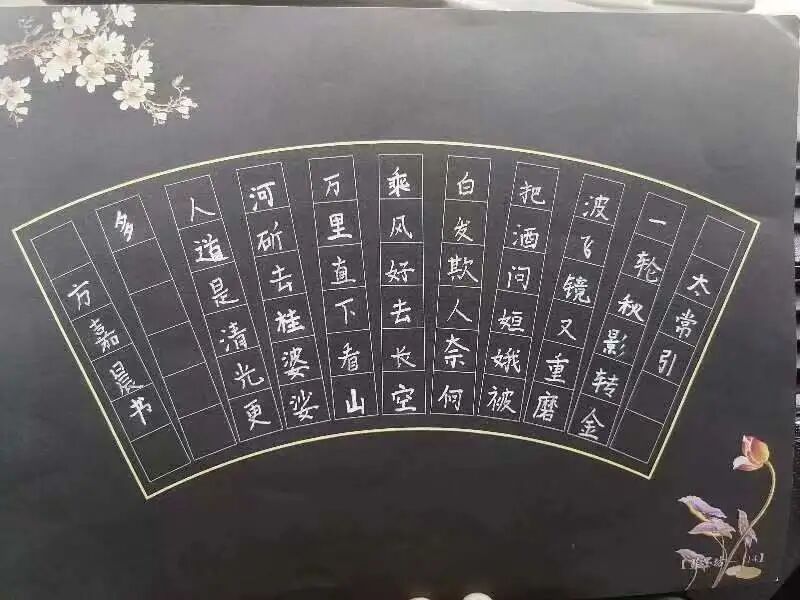 太常引
一轮秋影转金
波飞镜又重磨
把酒问姮娥被
白发欺人奈何
乘风好去长空
万里直下看山
河斫去桂婆娑
人道是清光更
多
方嘉晨书